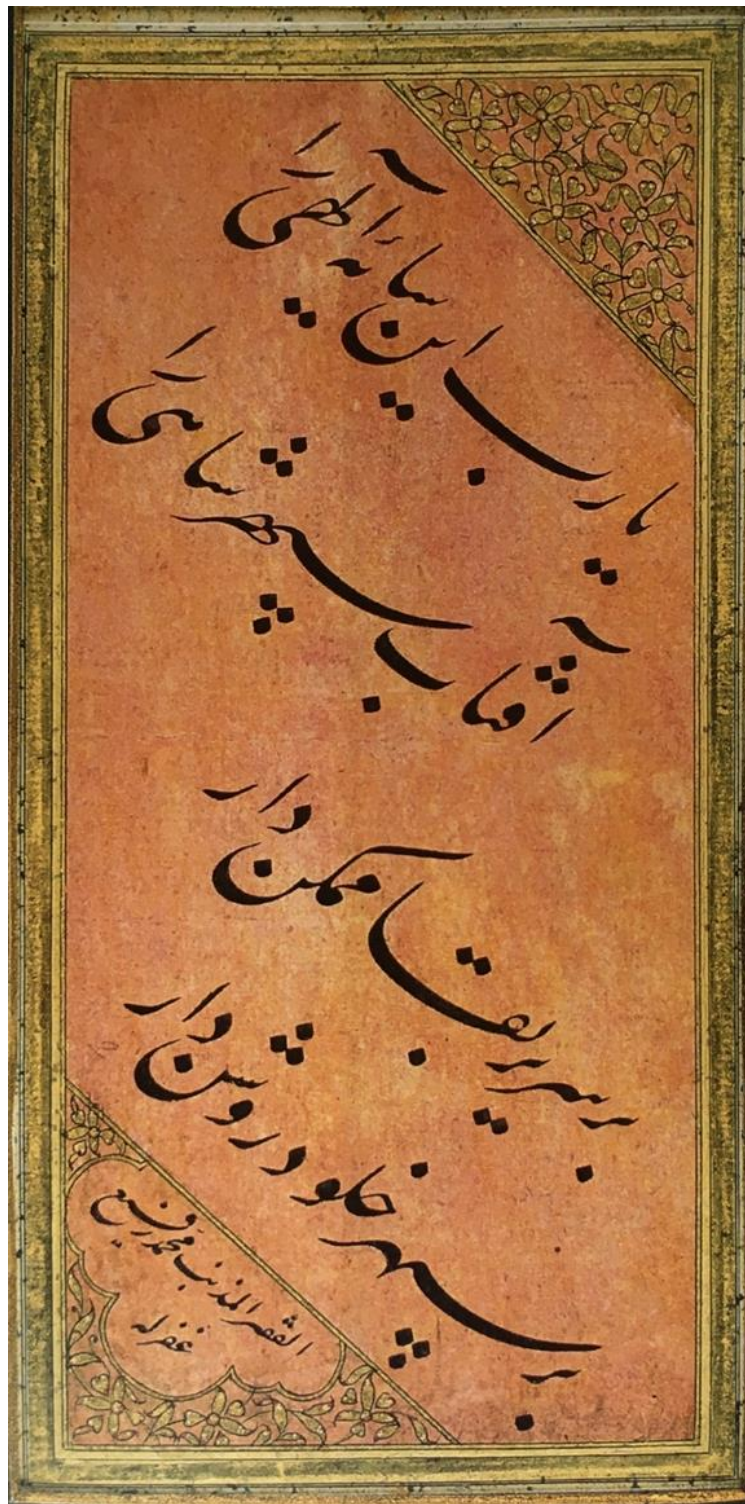 یارب این سایهٔ آلهی را
آفتاب سپهر شاهی را
بر سریر بقا ممکن دار
بر سپهر خلود روشن دار
الفقیر المذنب محمد رفیع
غفر له